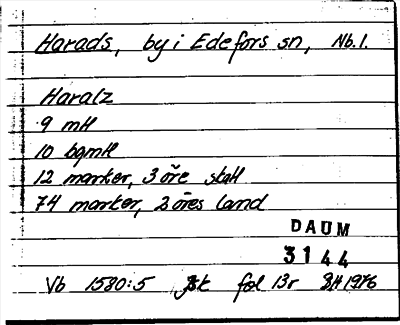 Harads, by i Edefors sn, Nb.l.
Haralz
9 mtl
10 bgmtl
12 marker, 3 öre skatt
74 marker, 2 öres land
DAUM
3144
Vb 1580:5 Jbk fol 13r 1976